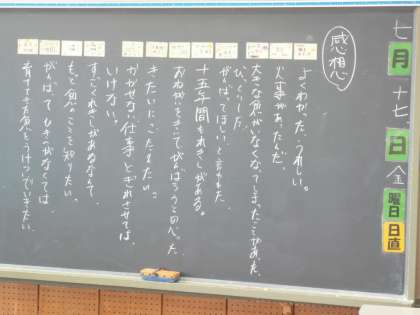 七月十七日金曜日
日直
感想
よくわかった。うれしい。
火事があったんだ。
大きな魚がいなくなってしまったことがあった。
びっくりした
がんばってほしいと言われた
十五年間もれきしがある。
おねがいをきいてがんばろうと思った
きたいにこたえたい。
かかせない仕事とぎれさせては、
いけない。
すごいれきしがあるなんて、
もっと魚のことを知りたい。
がんばって
育ててきた魚をうけついでいきたい。